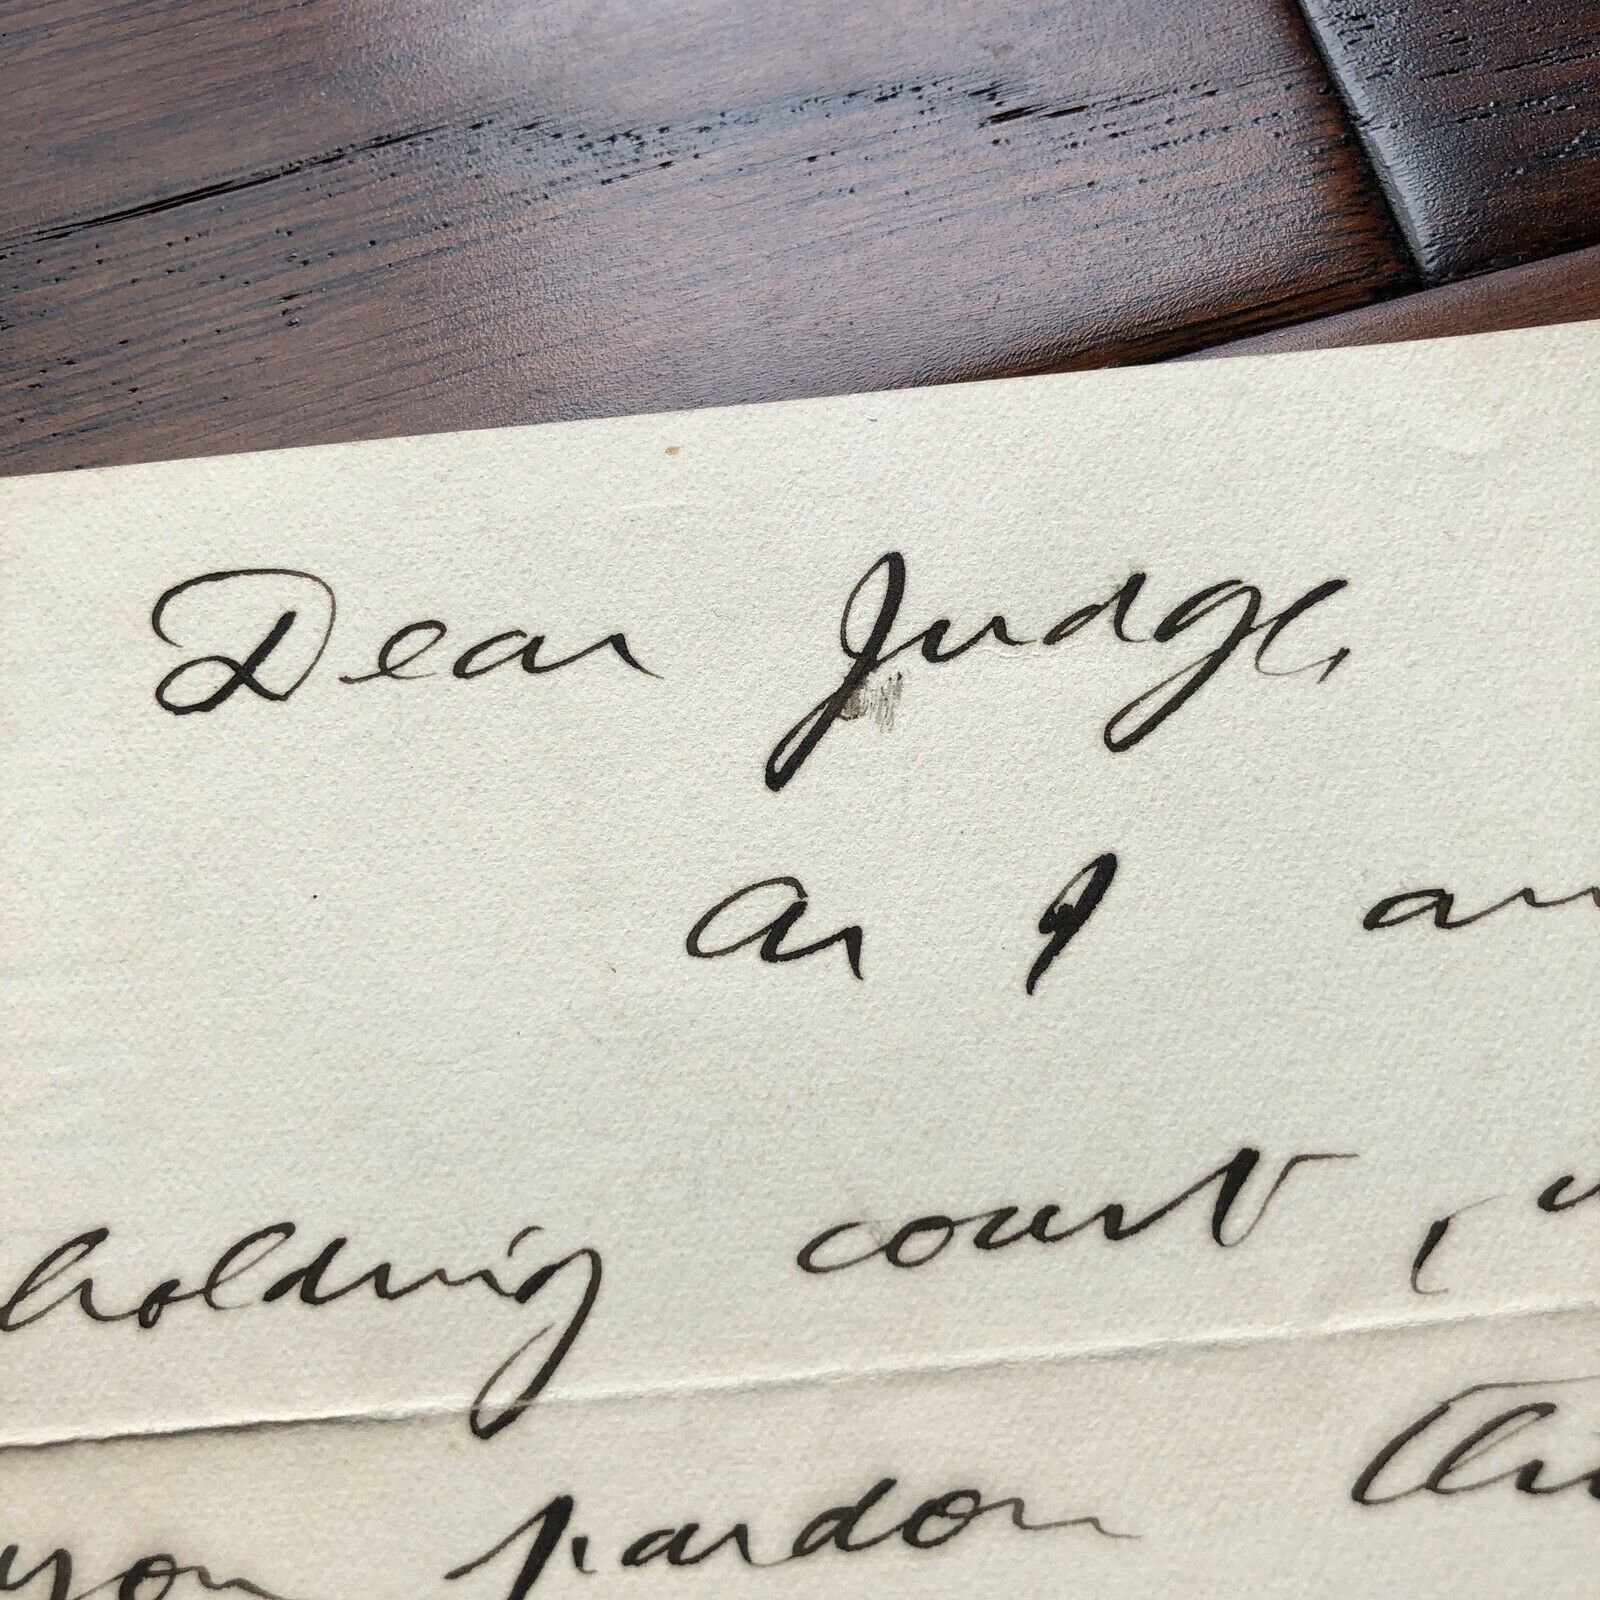 Dear Judge,
As I am
holding court,
you pardon this